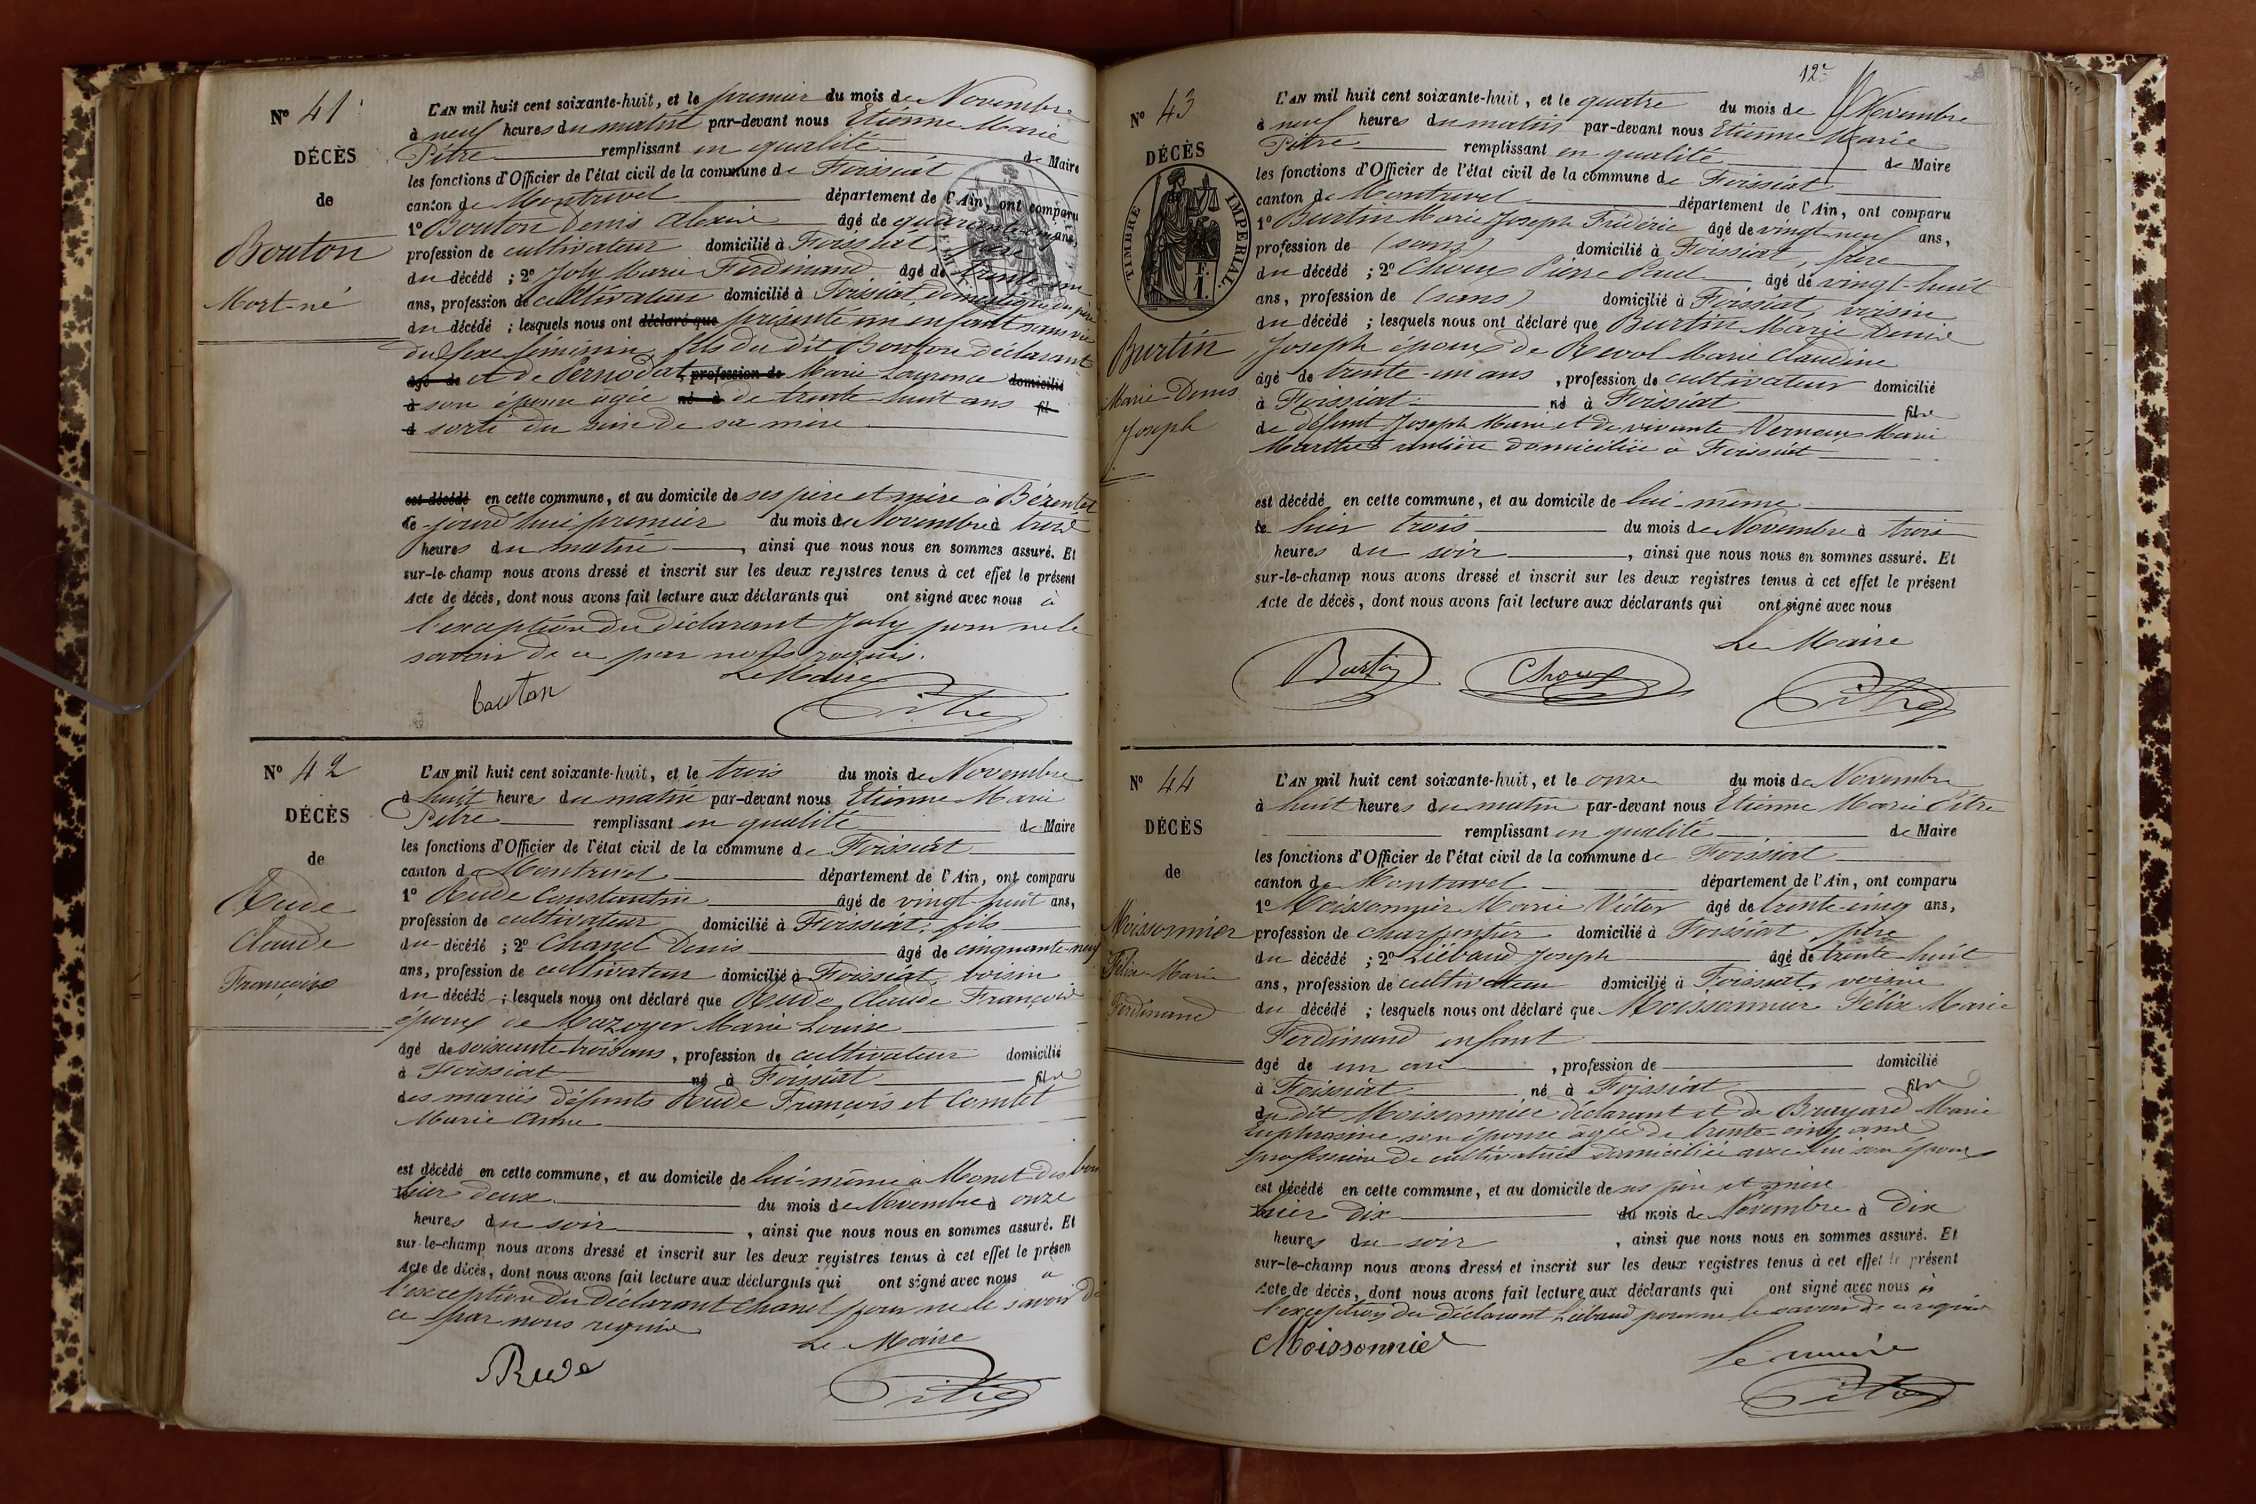 Nº 41
DÉCÈS
de
Bouton
Mort-né
L'AN mil huit cent soixante-huit, et le premier du mois de Novembre
à neuf heures du matin par-devant nous Etienne Marie
Pitre remplissant en qualité de Maire
les fonctions d'Officier de l'état civil de la commune de Foissiat
canton de Montrevel département de l'Ain, ont comparu
1º Bouton Denis Alexis âgé de ans,
profession de cultivateur domicilié à Foissiat, père
du décédé ; 2º Joly Marie Ferdinand âgé de trente un
ans, profession de cultivateur domicilié à Foissiat, domestique du père
du décédé ; lesquels nous ont déclaré que présenté un enfant sans vie
du sexe féminin, fils du dit Bouton déclarant
âgé de et de Pernodat, profession de Marie Laurence domicilié
à son épouse agée né à de trente-huit ans fil
d sorti du sein de sa mère
est décédé en cette commune, et au domicile de ses père et mère à Bézentet
le jourd'hui premier du mois de Novembre à trois
heures du matin, ainsi que nous nous en sommes assuré. Et
sur-le-champ nous avons dressé et inscrit sur les deux registres tenus à cet effet le présent
Acte de décès, dont nous avons fait lecture aux déclarants qui ont signé avec nous à
l'exception du déclarant Joly pour ne le
savoir de ce par nous requis.
Le Maire
bouton Pitre
Nº 42
DÉCÈS
de
Rude
Claude
François
L'AN mil huit cent soixante-huit, et le trois du mois de Novembre
à huit heures du matin par-devant nous Etienne Marie
Pitre remplissant en qualité de Maire
les fonctions d'Officier de l'état civil de la commune de Foissiat
canton de Montrevel département de l'Ain, ont comparu
1º Rude Constantin âgé de vingt-huit ans,
profession de cultivateur domicilié à Foissiat, fils
du décédé ; 2º Chanel Denis âgé de cinquante-neuf
ans, profession de cultivateur domicilié à Foissiat, voisin
du décédé ; lesquels nous ont déclaré que Rude Claude François
époux de Mazoyer Marie Louise
âgé de soixante-trois ans, profession de cultivateur domicilié
à Foissiat né à Foissiat fils
des mariés défunts Rude François et Comtet
Marie Anne
est décédé en cette commune, et au domicile de lui-même à Monet des bou
hier deux du mois de Novembre à onze
heures du soir, ainsi que nous nous en sommes assuré. Et
sur-le-champ nous avons dressé et inscrit sur les deux registres tenus à cet effet le présen
Acte de décès, dont nous avons fait lecture aux déclarants qui ont signé avec nous à
l'exception du déclarant Chanel pour ne le savoir de
ce par nous requis
Le Maire
Rude Pitre
12e
Nº 43
DÉCÈS
TIMBRE IMPÉRIAL
Burtin
Marie Denis
Joseph
L'AN mil huit cent soixante-huit, et le quatre du mois de Novembre
à neuf heures du matin par-devant nous Etienne Marie
Pitre remplissant en qualité de Maire
les fonctions d'Officier de l'état civil de la commune de Foissiat
canton de Montrevel département de l'Ain, ont comparu
1º Burtin Marie Joseph Frédéric âgé de vingt-neuf ans,
profession de (sans) domicilié à Foissiat, frère
du décédé ; 2º Choux Pierre Paul, âgé de vingt-huit
ans, profession de (sans) domicilié à Foissiat, voisin
du décédé ; lesquels nous ont déclaré que Burtin Marie Denis
Joseph époux de Revol Marie Claudine
âgé de trente-un ans, profession de cultivateur domicilié
à Foissiat né à Foissiat fils
de défunt Joseph Marie et de vivante Vernoux Marie
Marthe rentière domiciliée à Foissiat
est décédé en cette commune, et au domicile de lui-même
le hier trois du mois de Novembre à trois
heures du soir, ainsi que nous nous en sommes assuré. Et
sur-le-champ nous avons dressé et inscrit sur les deux registres tenus à cet effet le présent
Acte de décès, dont nous avons fait lecture aux déclarants qui ont signé avec nous
Le Maire
Burtin Choux Pitre
Nº 44
DÉCÈS
de
Moissonnier
Félix Marie
Ferdinand
L'AN mil huit cent soixante-huit, et le onze du mois de Novembre
à huit heures du matin par-devant nous Etienne Marie Pitre
remplissant en qualité de Maire
les fonctions d'Officier de l'état civil de la commune de Foissiat
canton de Montrevel département de l'Ain, ont comparu
1º Moissonnier Marie Victor âgé de trente-cinq ans,
profession de charpentier domicilié à Foissiat, père
du décédé ; 2º Liébaud Joseph âgé de trente-huit
ans, profession de cultivateur domicilié à Foissiat, voisin
du décédé ; lesquels nous ont déclaré que Moissonnier Félix Marie
Ferdinand enfant
âgé de un an, profession de domicilié
à Foissiat né à Foissiat fils
du dit Moissonnier déclarant et de Bruyard Marie
Euphrosine son épouse âgée de trente-cinq ans
profession de cultivatrice domiciliée avec lui son époux
est décédé en cette commune, et au domicile de ses père et mère
hier dix du mois de Novembre à dix
heures du soir, ainsi que nous nous en sommes assuré. Et
sur-le-champ nous avons dressé et inscrit sur les deux registres tenus à cet effet le présent
Acte de décès, dont nous avons fait lecture aux déclarants qui ont signé avec nous à
l'exception du déclarant Liébaud pour ne le savoir de ce requis
Moissonnier le maire
Pitre